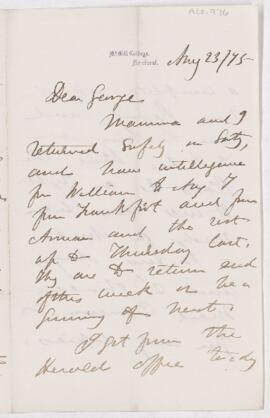 McGill College,
Montreal.
Aug 23/75 -
Dear George
Mamma and I
returned safely on Saty,
and have intelligence
fm William to Aug 7
from Frankfort and from
Anna and the rest
up to Thursday last.
They are to return end
of this week or be-
ginning of next.
I got from the
Herald office to-day